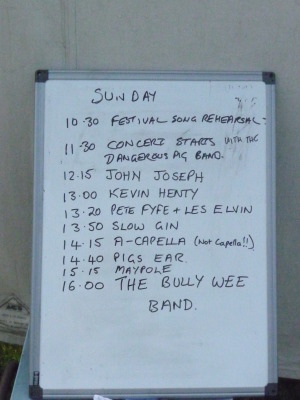 SUNDAY
10.30 FESTIVAL SONG REHEARSAL
11.30 CONCERT STARTS WITH THE
DANGEROUS PIG BAND.
12.15 JOHN JOSEPH
13.00 KEVIN HENTY
13.20 PETE FYFE + LES ELVIN
13.50 SLOW GIN
14.15 A-CAPELLA (Not Capella!!)
14.40 PIGS EAR
15.15 MAYPOLE
16.00 THE BULLY WEE
BAND.